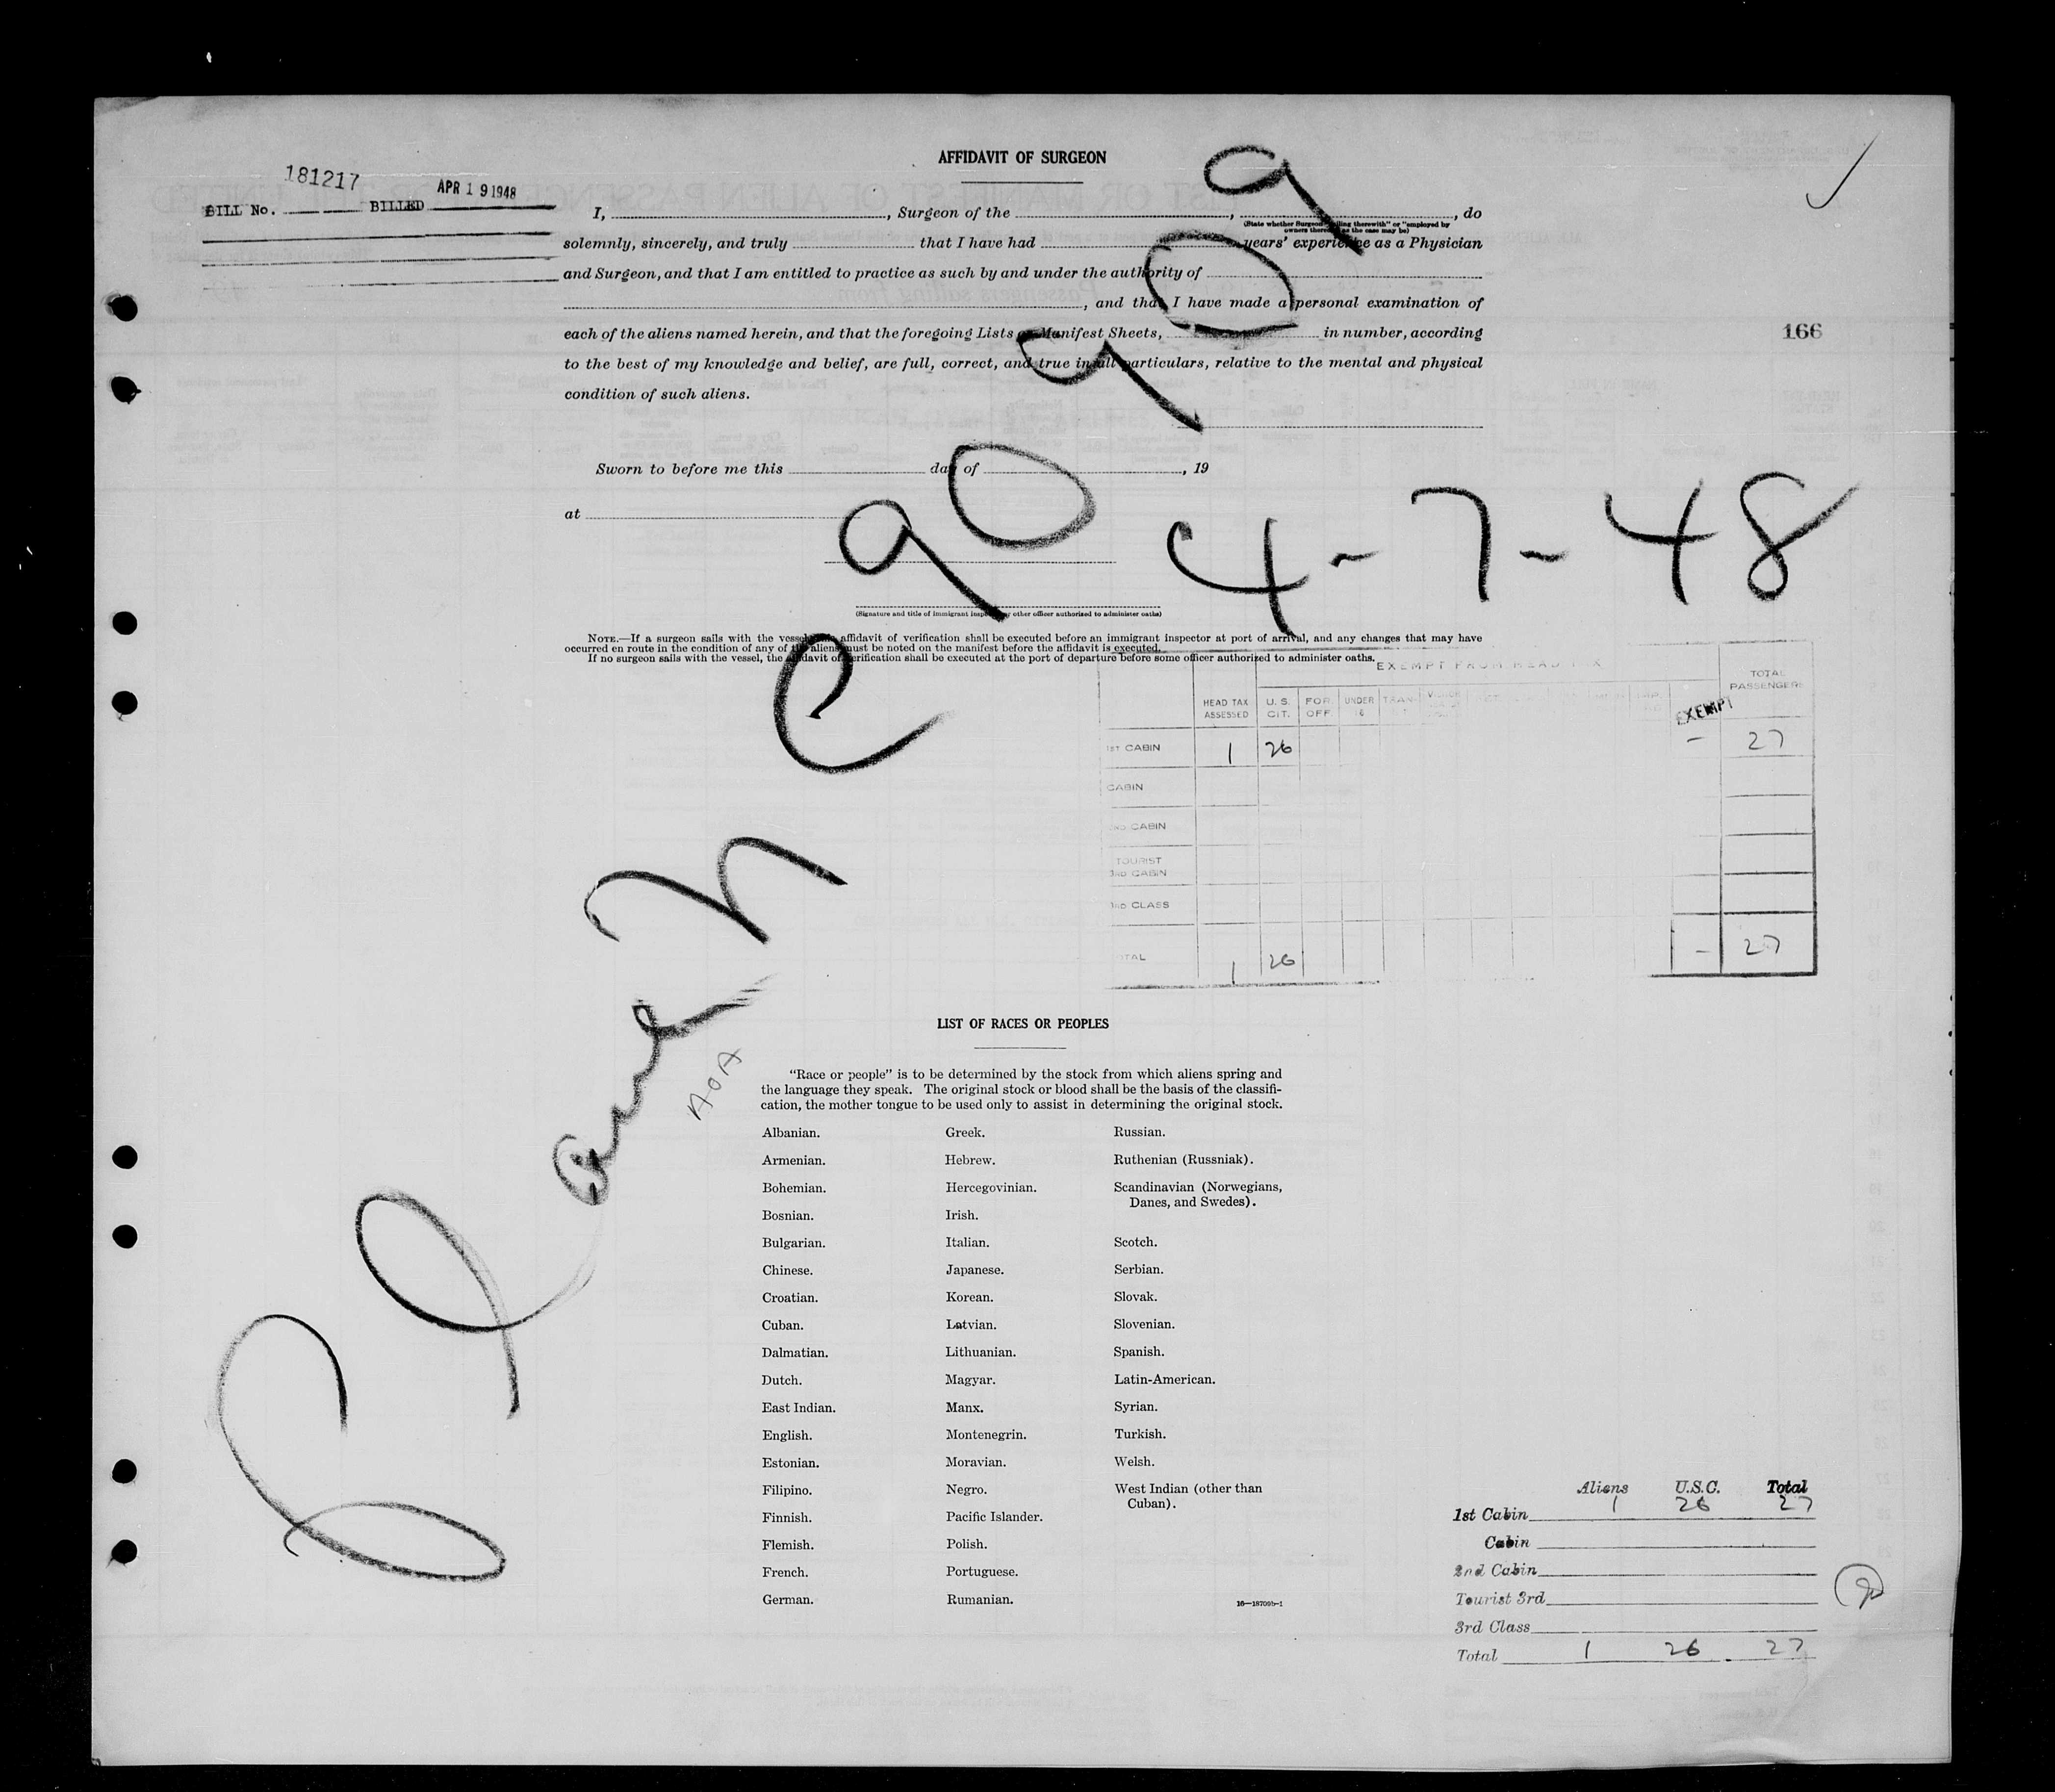 AFFIDAVIT OF SURGEON
181217
APR 19 1948
BILL No. BILLED
I, , Surgeon of the , , do
(State whether Surgeon sailing therewith" or "employed by
owners thereof, as the case may be)
solemnly, sincerely, and truly that I have had years' experience as a Physician
and Surgeon, and that I am entitled to practice as such by and under the authority of
, and that I have made a personal examination of
each of the aliens named herein, and that the foregoing Lists or Manifest Sheets, in number, according
to the best of my knowledge and belief, are full, correct, and true in all particulars, relative to the mental and physical
condition of such aliens.
166
Sworn to before me this day of , 19
at
Plane N C 90909
4-7-48
(Signature and title of immigrant inspector or other officer authorized to administer oaths)
NOTE.—If a surgeon sails with the vessel, the affidavit of verification shall be executed before an immigrant inspector at port of arrival, and any changes that may have
occurred en route in the condition of any of the aliens must be noted on the manifest before the affidavit is executed.
If no surgeon sails with the vessel, the affidavit of verification shall be executed at the port of departure before some officer authorized to administer oaths.
EXEMPT FROM HEAD TAX
TOTAL
PASSENGERS
HEAD TAX
ASSESSED
U. S.
CIT.
FOR.
OFF.
UNDER
16
TRAN-
EXEMPT
1ST CABIN 1 26 - 27
CABIN
2ND CABIN
TOURIST
3RD CABIN
3RD CLASS
TOTAL 1 26 - 27
AOA
LIST OF RACES OR PEOPLES
"Race or people" is to be determined by the stock from which aliens spring and
the language they speak. The original stock or blood shall be the basis of the classifi-
cation, the mother tongue to be used only to assist in determining the original stock.
Albanian. Greek. Russian.
Armenian. Hebrew. Ruthenian (Russniak).
Bohemian. Hercegovinian. Scandinavian (Norwegians,
Danes, and Swedes).
Bosnian. Irish.
Bulgarian. Italian. Scotch.
Chinese. Japanese. Serbian.
Croatian. Korean. Slovak.
Cuban. Latvian. Slovenian.
Dalmatian. Lithuanian. Spanish.
Dutch. Magyar. Latin-American.
East Indian. Manx. Syrian.
English. Montenegrin. Turkish.
Estonian. Moravian. Welsh.
Filipino. Negro. West Indian (other than
Cuban).
Finnish. Pacific Islander.
Flemish. Polish.
French. Portuguese.
German. Rumanian.
16—18709b-1
Aliens U.S.C. Total
1st Cabin 1 26 27
Cabin
2nd Cabin
Tourist 3rd
3rd Class
Total 1 26 27